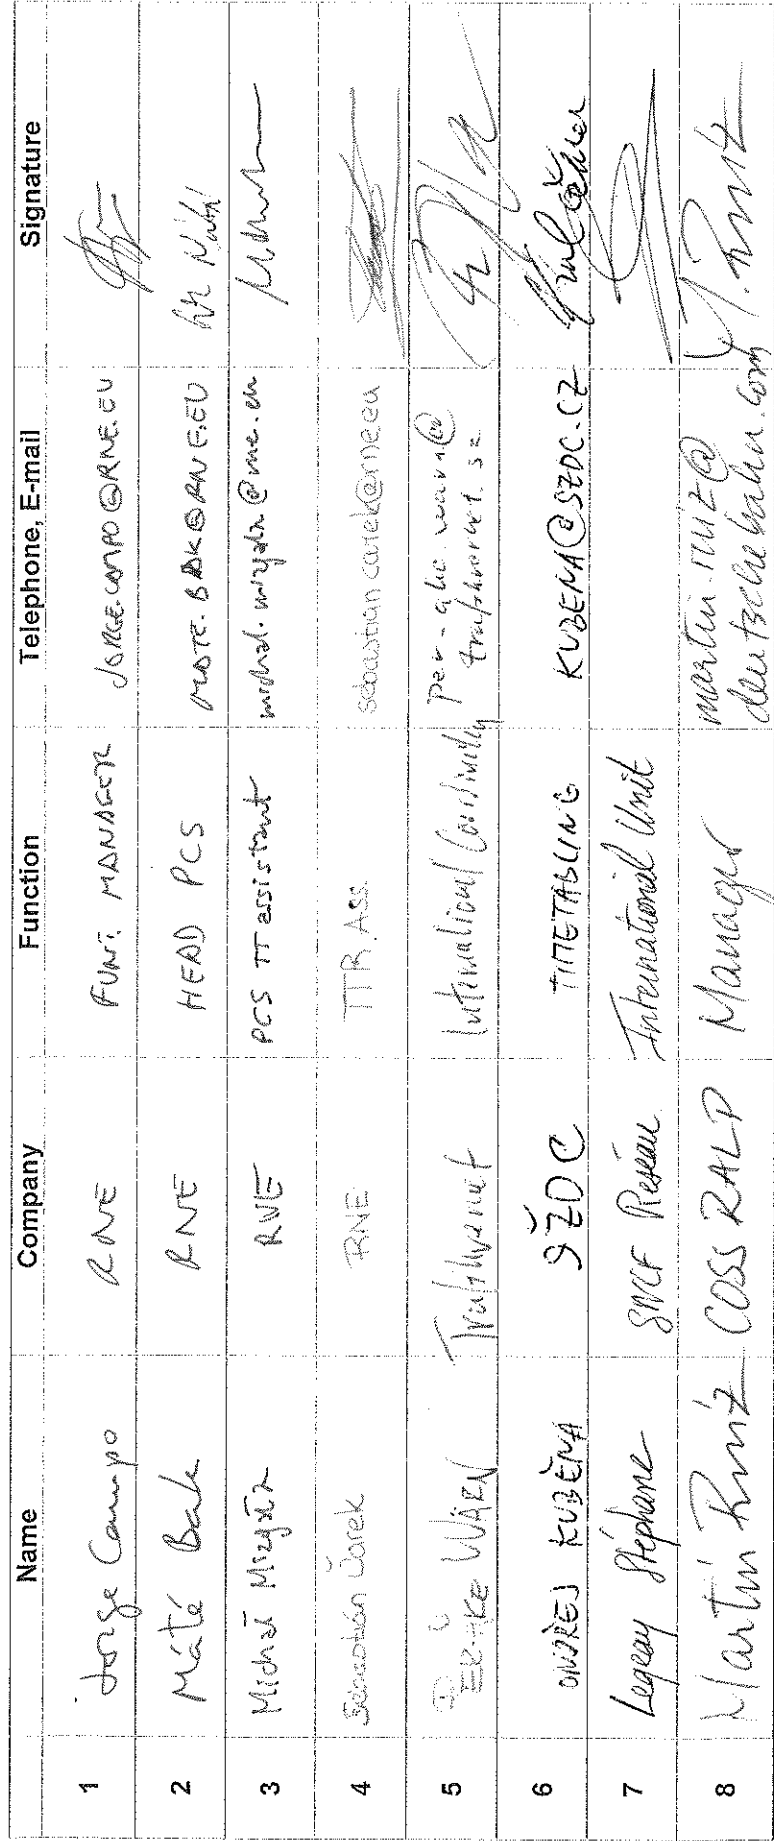 Name Company Function Telephone, E-mail Signature
1 Jorge Campo RNE FUNC. MANAGER JORGE.CAMPO@RNE.EU
2 Máté Bak RNE HEAD PCS MATE.BAK@RNE.EU
3 RNE PCS TT assistant
4 Sebastián Čarek RNE TTR Ass. sebastian.carek@rne.eu
5 PER-ÅKE WÄRN Trafikverket International Coordinator per-ake.warn@
trafikverket.se
6 ONDŘEJ KUBĚNA SŽDC TIMETABLING KUBENA@SZDC.CZ
7 Legeay Stéphane SNCF Réseau International Unit
8 Martin Ruiz COSS RALP Manager martin.ruiz@
deutschebahn.com